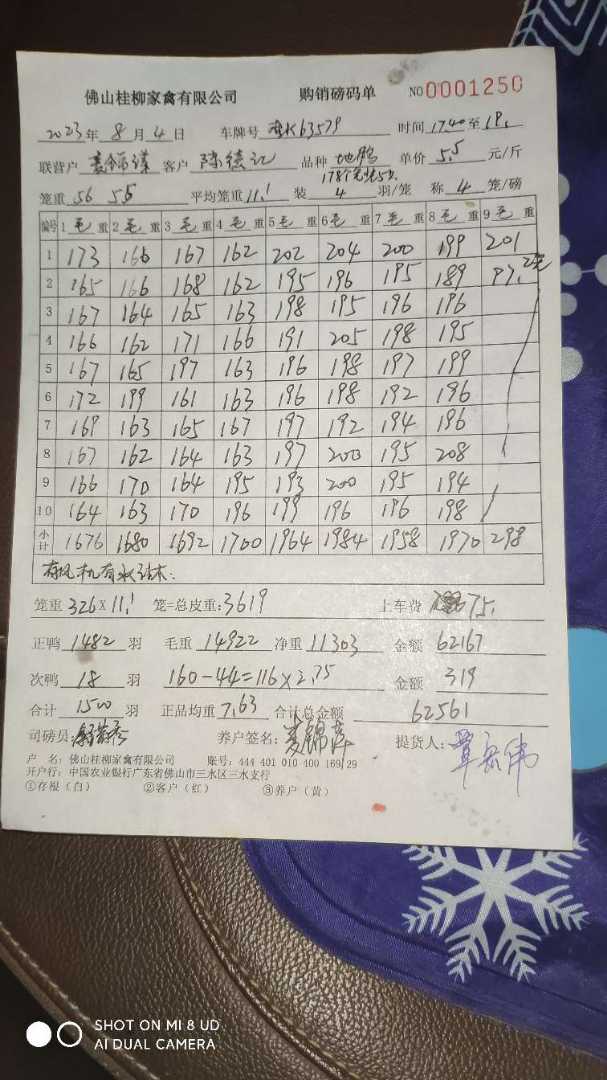 佛山桂柳家禽有限公司 购销磅码单 NO 0001250
2023年 8 月 4 日 车牌号 63579 时间 1740 至 18
联营户 客户 陈德记 品种 地鸭 单价 5.5 元/斤
178个
笼重 56 55 平均笼重 11.1 装 4 羽/笼 称 4 笼/磅
编号 1 毛 重 2 毛 重 3 毛 重 4 毛 重 5 毛 重 6 毛 重 7 毛 重 8 毛 重 9 毛 重
1 173 166 167 162 202 204 200 199 201
2 165 166 168 162 195 196 195 189 97
3 167 164 165 163 198 195 196 196
4 166 162 171 166 191 205 198 195
5 167 165 197 163 196 198 197 199
6 172 199 161 163 196 198 192 196
7 169 163 165 167 197 192 194 196
8 167 162 164 163 197 200 195 208
9 166 170 164 195 193 200 195 194
10 164 163 170 196 199 196 196 198
小计 1676 1680 1692 1700 1964 1984 1958 1970 298
有风机有水
笼重 326 X 11.1 笼=总皮重: 3619 上车费 75
正鸭 1482 羽 毛重 14922 净重 11303 金额 62167
次鸭 18 羽 160-44=116×2.75 金额 319
合计 1500 羽 正品均重 7.63 合计总金额 62561
司磅员: 养户签名: 提货人:
户 名: 佛山桂柳家禽有限公司 账号: 444 401 010 400 169 29
开户行: 中国农业银行广东省佛山市三水区三水支行
①存根(白) ②客户(红) ③养户(黄)
SHOT ON MI 8 UD
AI DUAL CAMERA